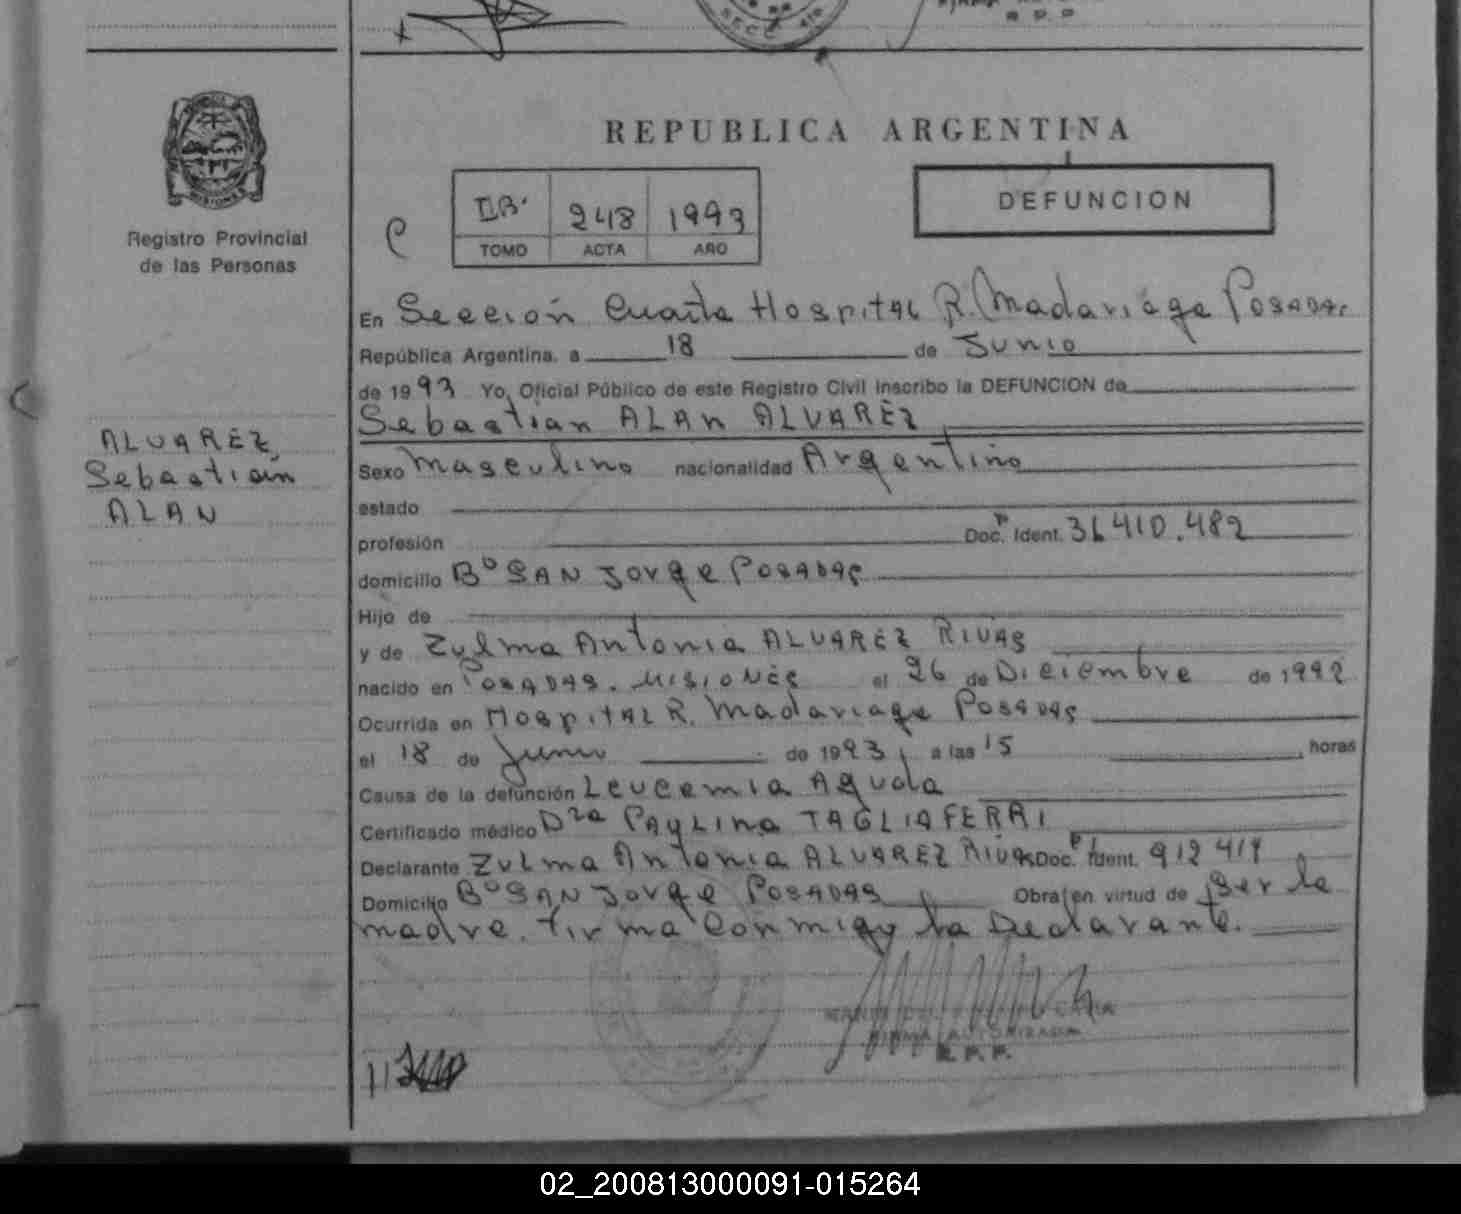 SECC. 4ta
R. P. P.
MISIONES
Registro Provincial
de las Personas
REPUBLICA ARGENTINA
DEFUNCION
248 1993
TOMO ACTA AÑO
En Sección Cuarta Hospital R. Madariaga Posadas
República Argentina, a 18 de Junio
de 1993 Yo, Oficial Público de este Registro Civil inscribo la DEFUNCION de
Sebastian ALAN ALVAREZ
ALVAREZ,
Sebastian
ALAN
Sexo Masculino nacionalidad Argentino
estado
profesión Doc. Ident. 36.410.482
domicilio Bº SAN Jorge Posadas
Hijo de
y de Zulma Antonia ALVAREZ RIVAS
nacido en Posadas. Misiones el 26 de Diciembre de 1992
Ocurrida en Hospital R. Madariaga Posadas
el 18 de Junio de 1993, a las 15 horas
Causa de la defunción Leucemia Aguda
Certificado médico Dra Paulina TAGLIAFERRI
Declarante Zulma Antonia ALVAREZ RIVAS Doc. Ident. 912414
Domicilio Bº SAN Jorge Posadas Obra en virtud de Ser la
madre. Firma Conmigo la Declarante.
FIRMA AUTORIZADA
R. P. P.
02_200813000091-015264